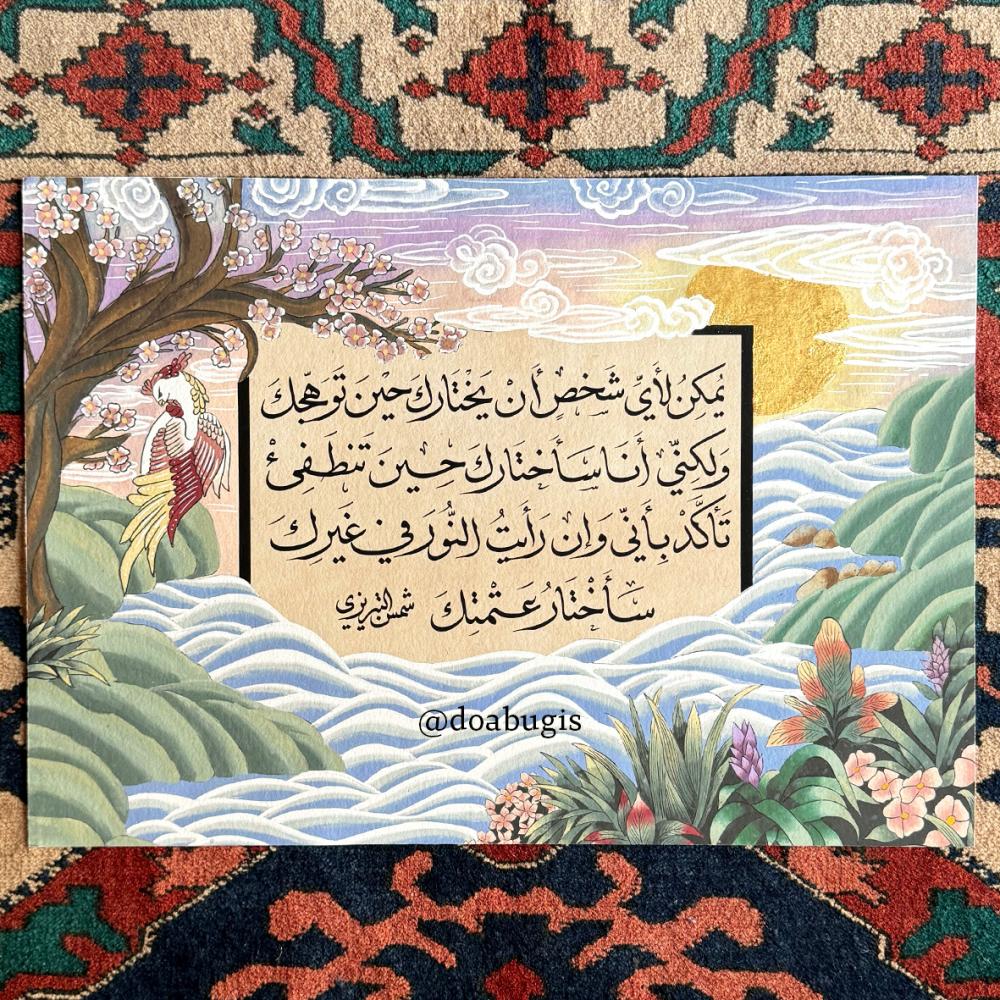 يُمكِنُ لأَيِّ شَخصٍ أَنْ يَختَارَكَ حِيْنَ تَوَهّجِكَ
وَلَكِنّي أَنَا سَأَختَارَكَ حِـينَ تَنطَـفِئْ
تَأَكَّدْ بِأَنّي وَإِن رَأَيتُ النُّورَ في غَيرِكَ
سَـأَخْتَارُ عَـتْمتِكَ شمس التبريزي
@doabugis